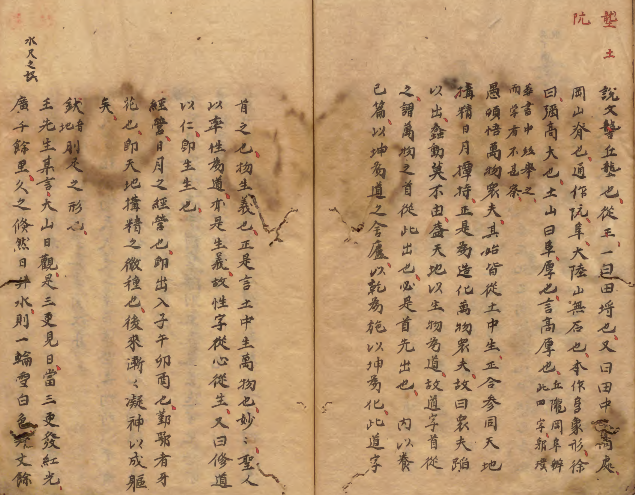 壟 土
阬
說文壟丘壠也從土一曰田埒也又曰田中高處
岡山脊也通作阬阜大陸山無石也本作𨸏象形徐
曰彊高大也土山曰阜厚也言高厚也
丘隴岡阜辨
此四字
群書中縂舉之
而學者不甚察
愚頓悟萬物眾夫其始皆從土中生正合參同天地
搆精日月撢持正是為造化萬物眾夫故曰眾夫蹈
以出蠢動莫不由盡天地以生物為道故道字首從
之謂萬物之首從此出也必是首先出也 內以養
已篇以坤為道之舍廬以乾為施以坤為化此道字
首之也物生義也正是言土中生萬物也妙二聖人
以率性為道亦是生義故性字從心從生又曰修道
以仁即生生也
經營日月之經營也即出入子午卯酉也鄞鄂者牙
花也即天地搆精之微種也後來漸く凝神以成軀
矣
則天之形也
王先生某言大山日觀是三更見日當三更發紅光
廣千餘里久之倏然日升水則一輪雪白色文餘
水尺之